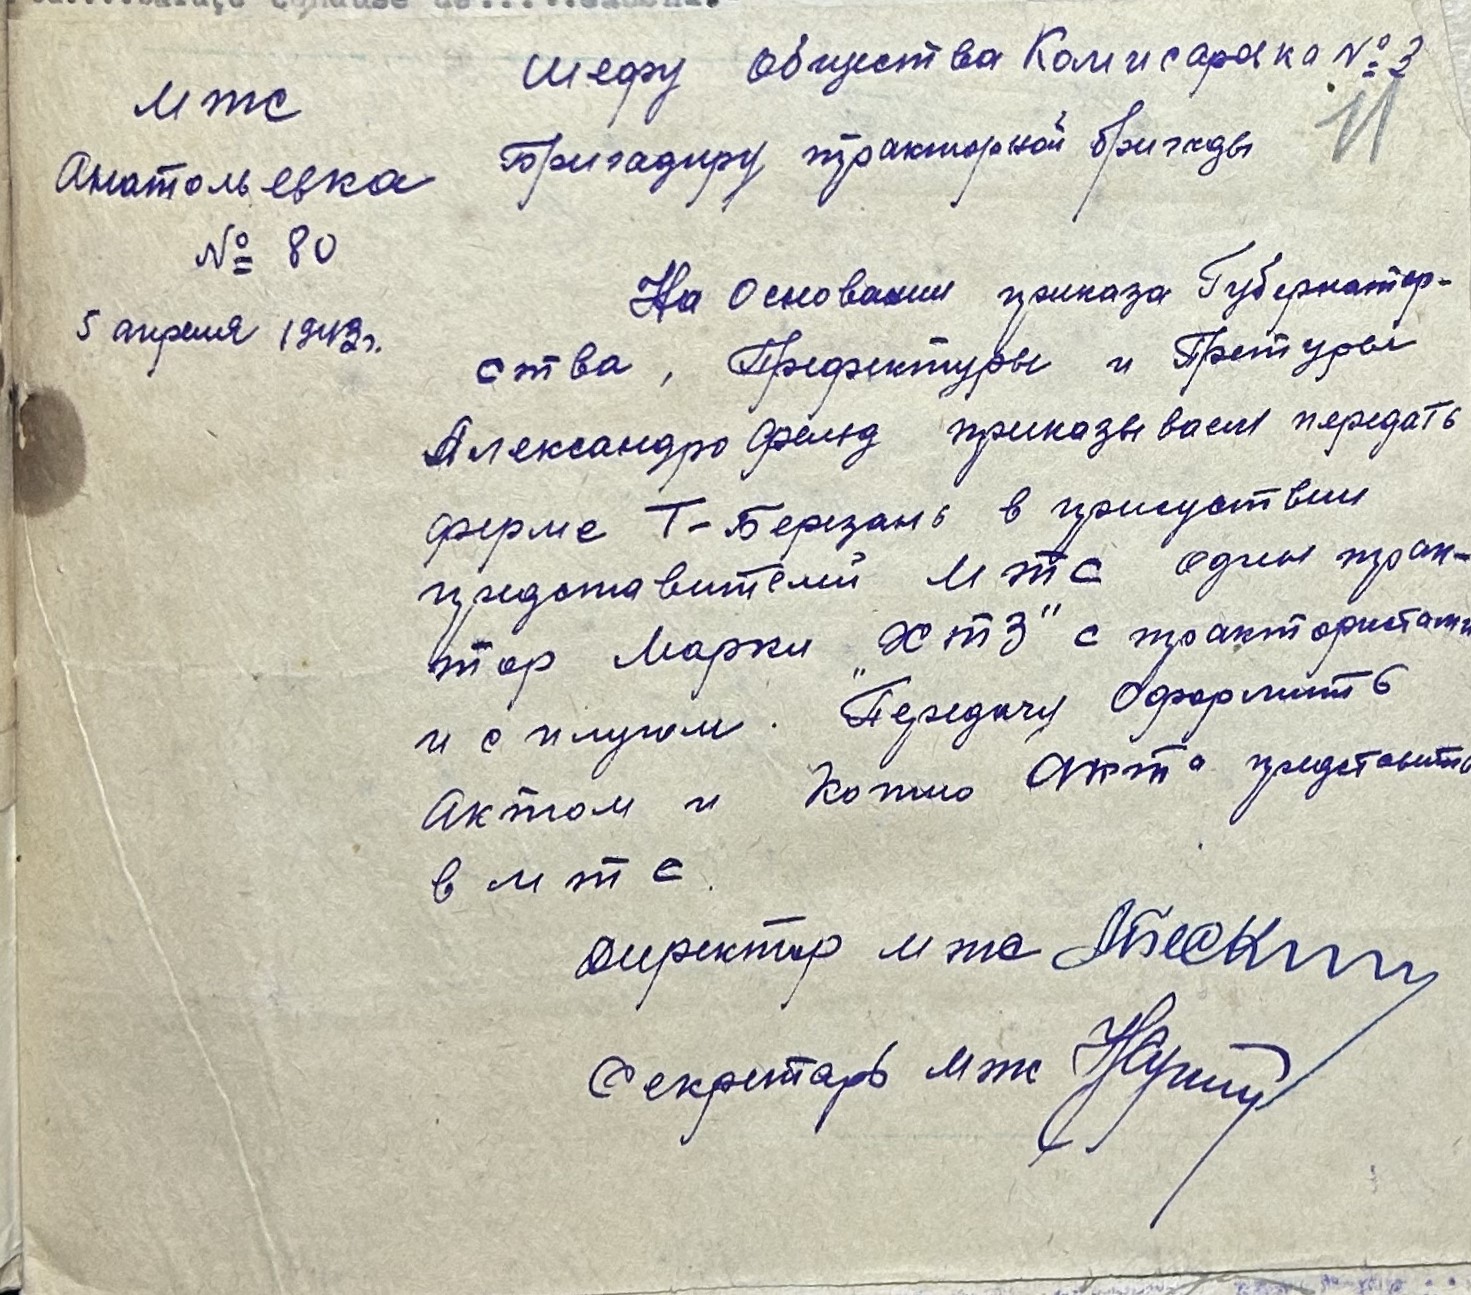 Шефу Общества Комисаровка № 3
11
Бригадиру тракторной бригады
МТС
Анатольевка
№ 80
5 апреля 1943 г.
На основании приказа Губернатор-
ства, Префектуры и Претуры
Александрофельд приказываем передать
ферме Т-Березань в присуствии
представителей МТС один трак-
тор марки "ХТЗ" с трактористами
и с плугом. Передачу оформить
Актом и копию Акта представить
в МТС.
Директор МТС
Секретарь МТС